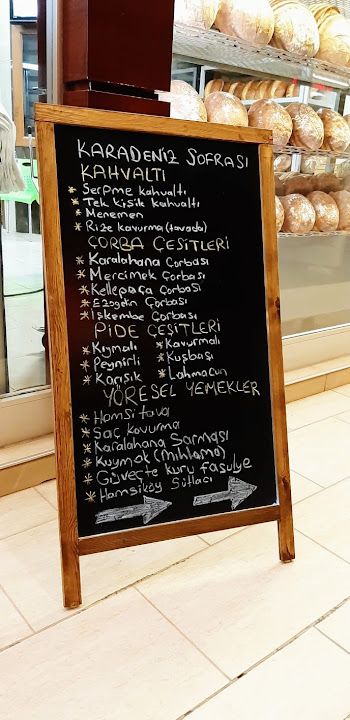 KARADENİZ SOFRASI
KAHVALTI
* Serpme kahvaltı
* Tek kişik kahvaltı
* Menemen
* Rize kavurma (tavada)
ÇORBA ÇEŞİTLERİ
* Karalahana Çorbası
* Mercimek Çorbası
* Kellepaça Çorbası
* Ezogelin Çorbası
* İşkembe Çorbası
PİDE ÇEŞİTLERİ
* Kıymalı * Kavurmalı
* Peynirli * Kuşbaşı
* Karışık * Lahmacun
YÖRESEL YEMEKLER
* Hamsi tava
* Saç kavurma
* Karalahana Sarması
* Kuymak (Mıhlama)
* Güveçte kuru fasulye
* Hamsiköy Sütlacı